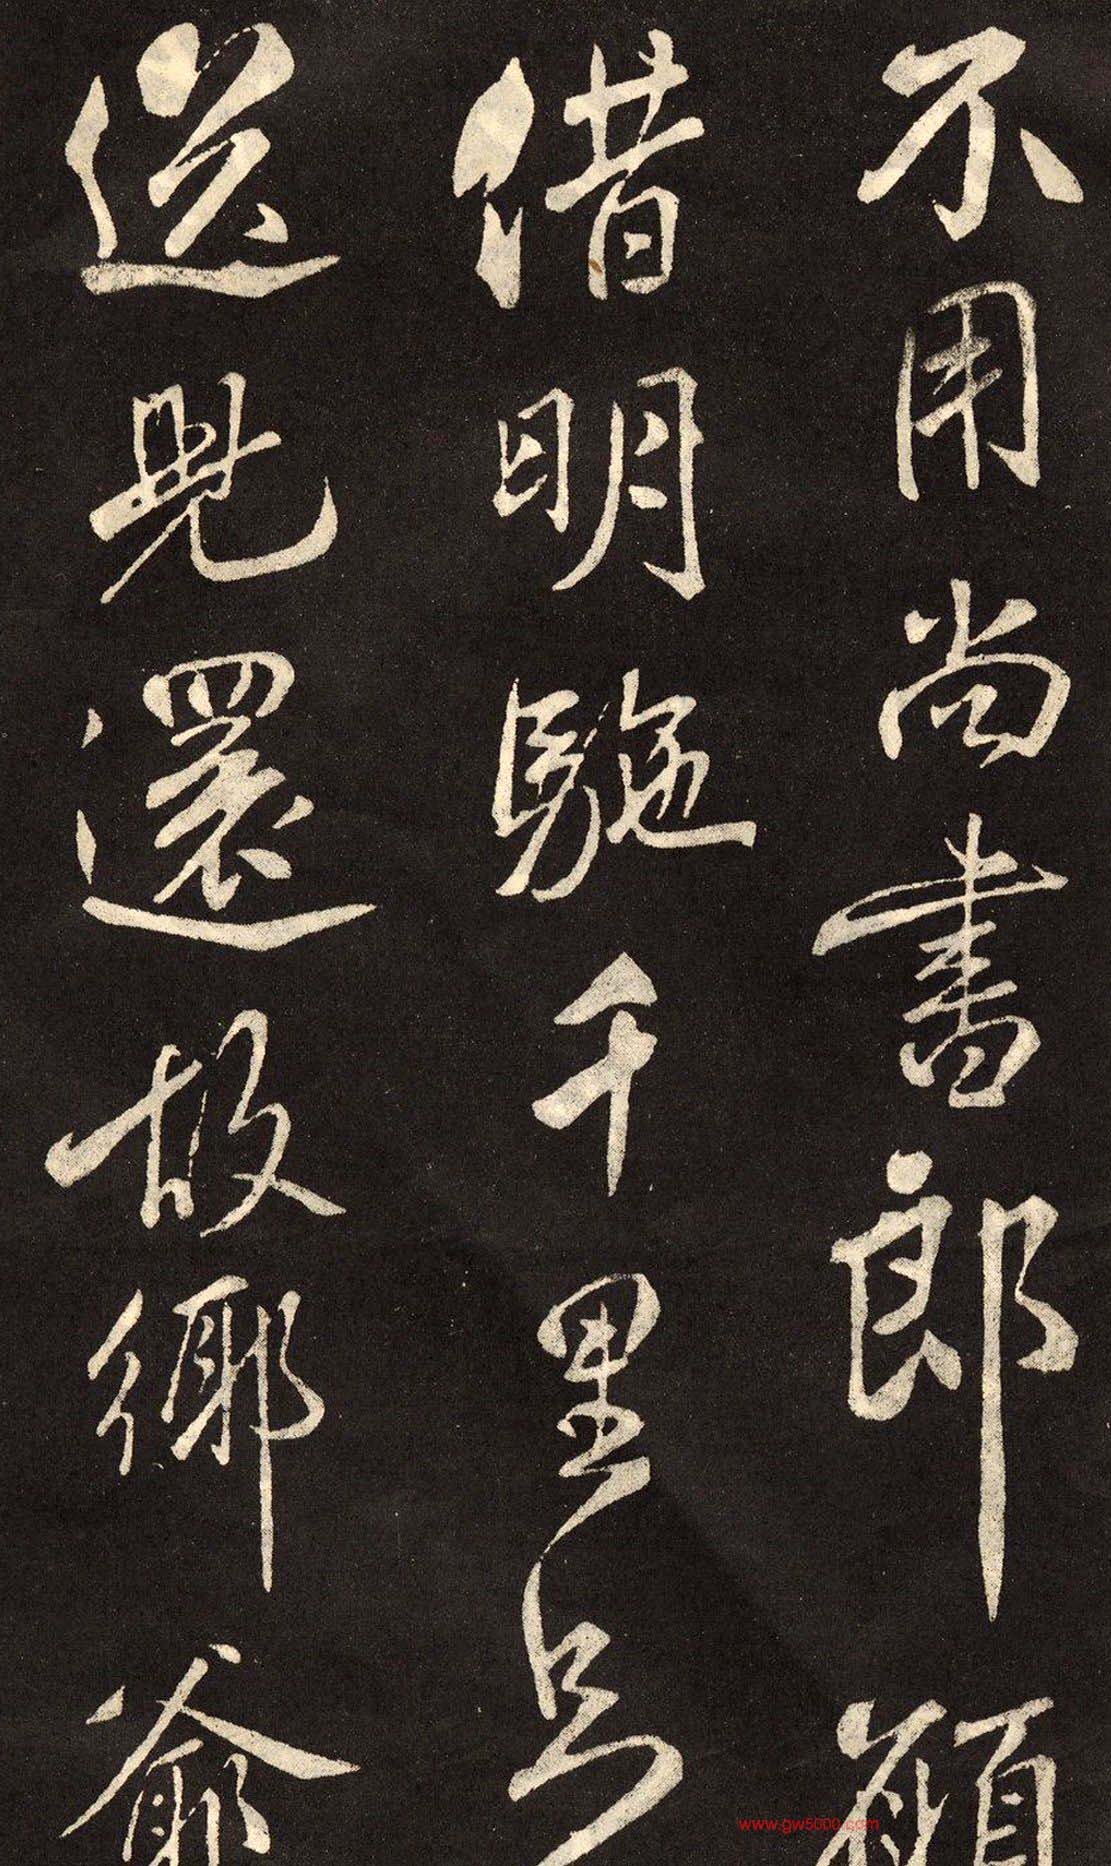 不用尚書郎願
借明駞千里足
送兒還故鄉爺
www.gw5000.com